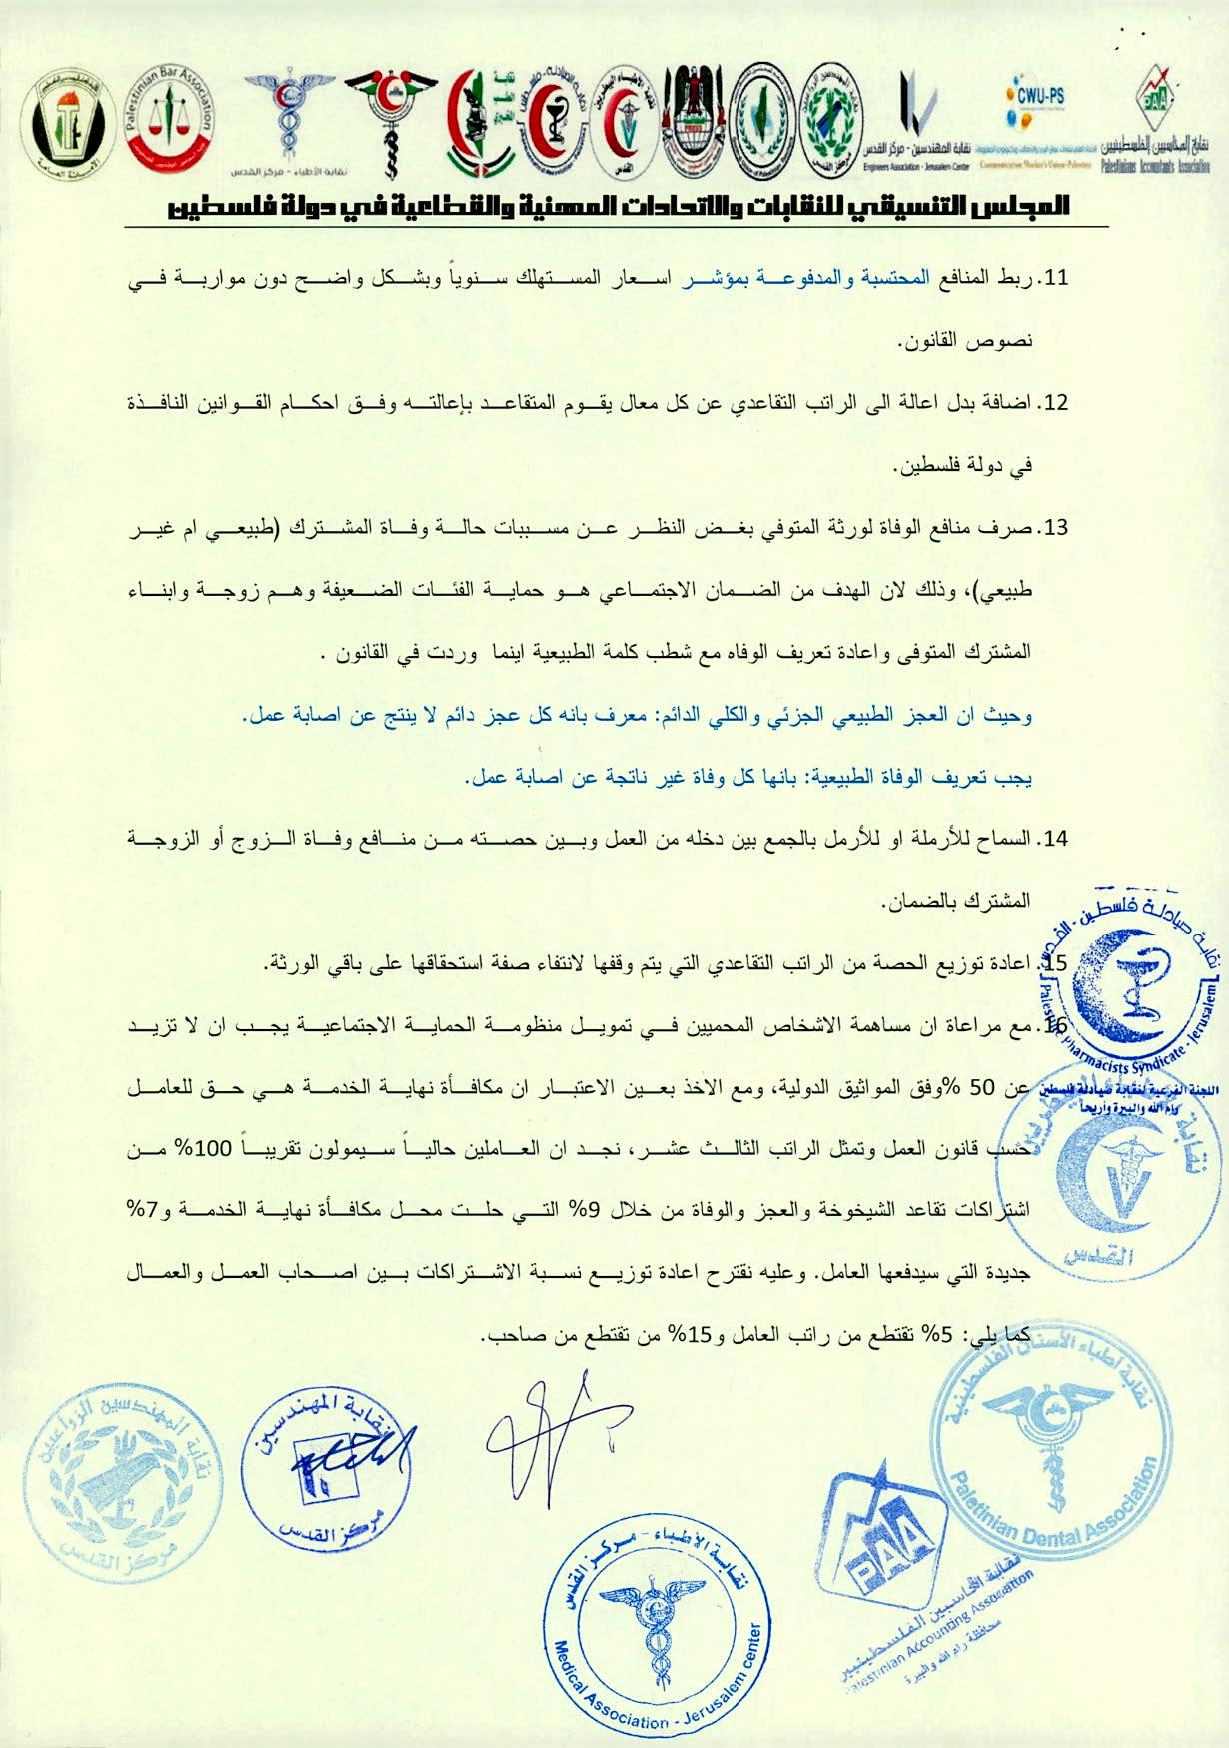 Palestinian Bar Association
نقابة الأطباء - مركز القدس
نقابة المهندسين - مركز القدس
Engineers Association - Jerusalem Center
CWU-PS
Communication Worker's Union-Palestine
PAA
نقابة المحاسبين الفلسطينيين
Palestinians Accountants Association
المجلس التنسيقي للنقابات والاتحادات المهنية والقطاعية في دولة فلسطين
11. ربط المنافع المحتسبة والمدفوعة بمؤشر اسعار المستهلك سنوياً وبشكل واضح دون مواربة في
نصوص القانون.
12. اضافة بدل اعالة الى الراتب التقاعدي عن كل معال يقوم المتقاعد بإعالته وفق احكام القوانين النافذة
في دولة فلسطين.
13. صرف منافع الوفاة لورثة المتوفي بغض النظر عن مسببات حالة وفاة المشترك (طبيعي ام غير
طبيعي)، وذلك لان الهدف من الضمان الاجتماعي هو حماية الفئات الضعيفة وهم زوجة وابناء
المشترك المتوفى واعادة تعريف الوفاه مع شطب كلمة الطبيعية اينما وردت في القانون .
وحيث ان العجز الطبيعي الجزئي والكلي الدائم: معرف بانه كل عجز دائم لا ينتج عن اصابة عمل.
يجب تعريف الوفاة الطبيعية: بانها كل وفاة غير ناتجة عن اصابة عمل.
14. السماح للأرملة او للأرمل بالجمع بين دخله من العمل وبين حصته من منافع وفاة الزوج أو الزوجة
المشترك بالضمان.
15. اعادة توزيع الحصة من الراتب التقاعدي التي يتم وقفها لانتفاء صفة استحقاقها على باقي الورثة.
16. مع مراعاة ان مساهمة الاشخاص المحميين في تمويل منظومة الحماية الاجتماعية يجب ان لا تزيد
عن 50 %وفق المواثيق الدولية، ومع الاخذ بعين الاعتبار ان مكافأة نهاية الخدمة هي حق للعامل
حسب قانون العمل وتمثل الراتب الثالث عشر، نجد ان العاملين حالياً سيمولون تقريباً 100% من
اشتراكات تقاعد الشيخوخة والعجز والوفاة من خلال 9% التي حلت محل مكافأة نهاية الخدمة و7%
جديدة التي سيدفعها العامل. وعليه نقترح اعادة توزيع نسبة الاشتراكات بين اصحاب العمل والعمال
كما يلي: 5% تقتطع من راتب العامل و15% من تقتطع من صاحب.
نقابة صيادلة فلسطين - القدس
Palestine Pharmacists Syndicate - Jerusalem
اللجنة الفرعية لنقابة صيادلة فلسطين
رام الله والبيرة وأريحا
القدس
نقابة أطباء الأسنان الفلسطينية
Paletinian Dental Association
نقابة المهندسين الزراعيين
مركز القدس
نقابة المهندسين
مركز القدس
PAA
نقابة المحاسبين الفلسطينيين
Palestinian Accounting Association
محافظة رام الله والبيرة
نقابة الأطباء - مركز القدس
Medical Association - Jerusalem center